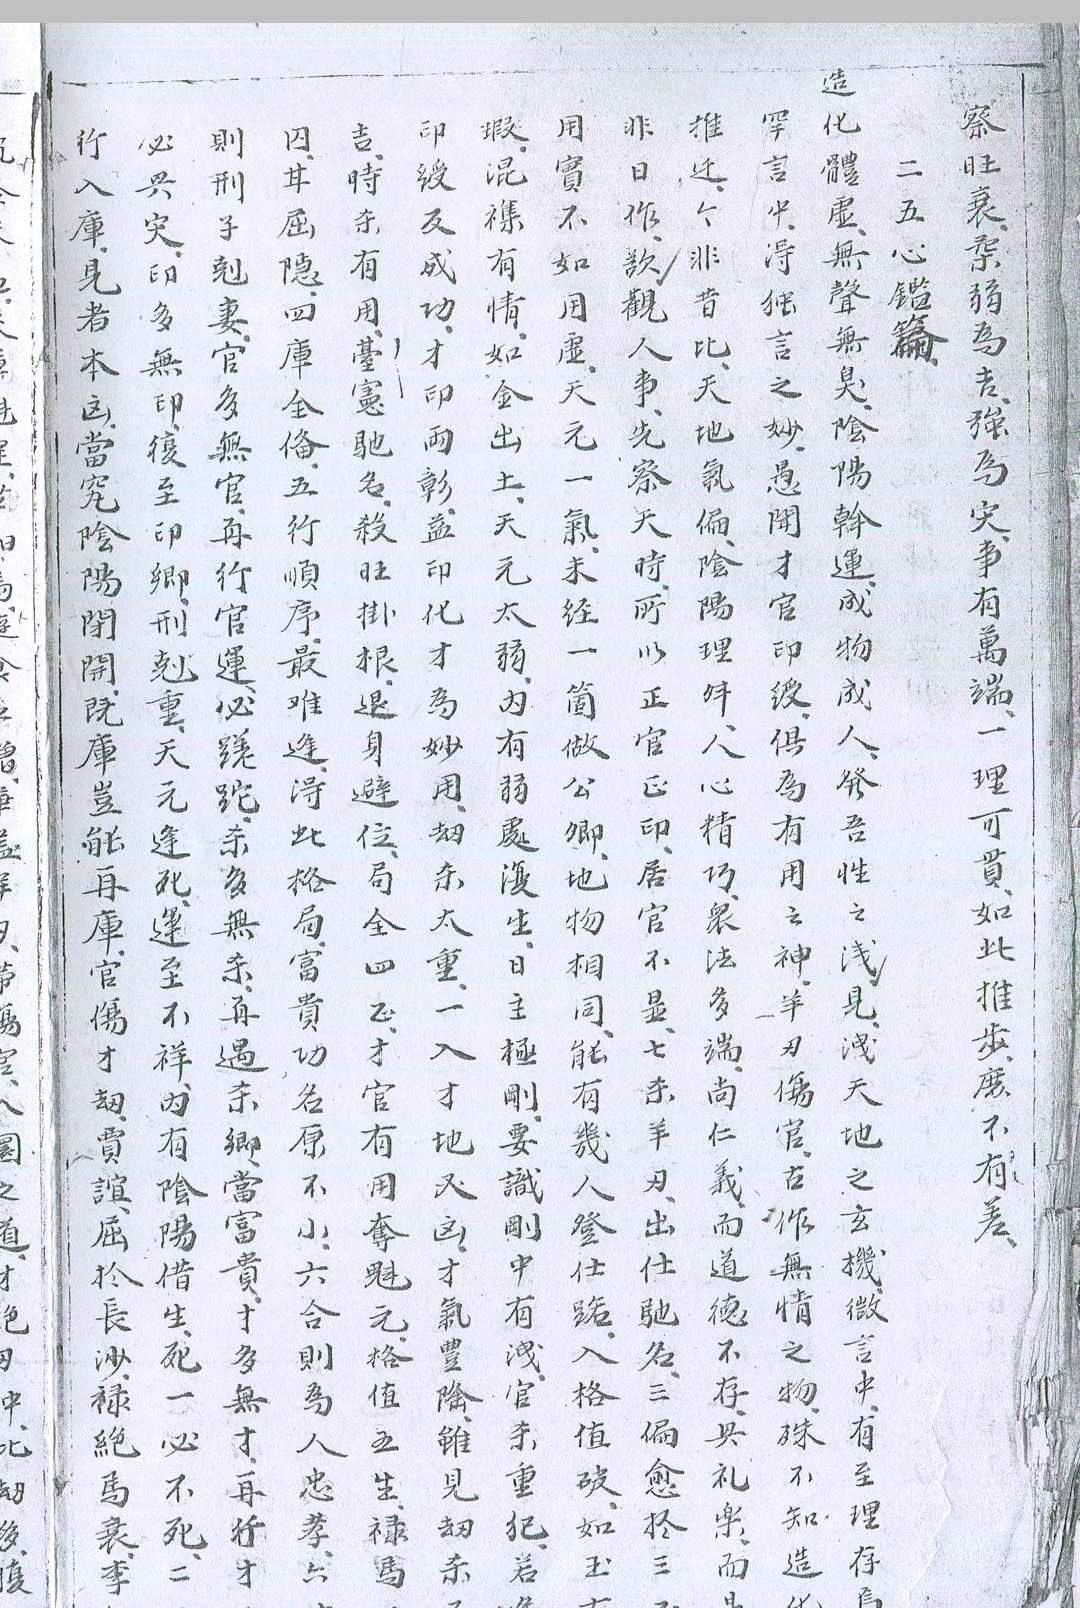 察旺衰、柔弱為吉、強為灾、事有萬端、一理可貫、如此推步、庶不有差、
二五心鑑篇
造化體虛、無聲無臭、陰陽斡運、成物成人、發吾性之浅見、洩天地之玄機、微言中、有至理存焉
罕言中、淂独言之妙、愚開才官印綬、俱為有用之神、羊刃傷官、古作無情之物、殊不知造化
推迁、今非昔比、天地氣偏、陰陽理舛、人心精巧、衆法多端、尚仁義、而道德不存、具礼樂、而
非日作、欲觀人事、先察天時、所以正官正印、居官不显、七杀羊刃、出仕馳名、三偏愈扵三
用實不如用虛、天元一氣、未経一箇做公卿、地物相同、能有幾人登仕路、入格值破、如玉有
瑕、混襍有情、如金出土、天元太弱、内有弱處復生、日主極剛、要識剛中有洩、官杀重犯、若
印綬反成功、才印両彰、益印化才為妙用、刼杀太重、一入才地又凶、才氣豐隆、雖見刼杀
吉、時杀有用、臺憲馳名、殺旺掛根、退身避位、局全四正、才官有用奪魁元、格值五生、禄馬
囚、其屈隐、四庫全俻、五行順序、最难逢、淂此格局、富貴功名原不小、六合則為人忠孝、六
則刑子尅妻、官多無官、再行官運、必蹉跎、杀多無杀、再遇杀鄉、當富貴、才多無才、再行才
必興灾、印多無印、復至印鄉、刑尅重、天元逢死、運至不祥、内有陰陽借生、死一必不死、二
行入庫、見者本凶、當究陰陽閉開、既庫豈能再庫、官傷才刼、賈誼、屈扵長沙、禄絶馬衰、李